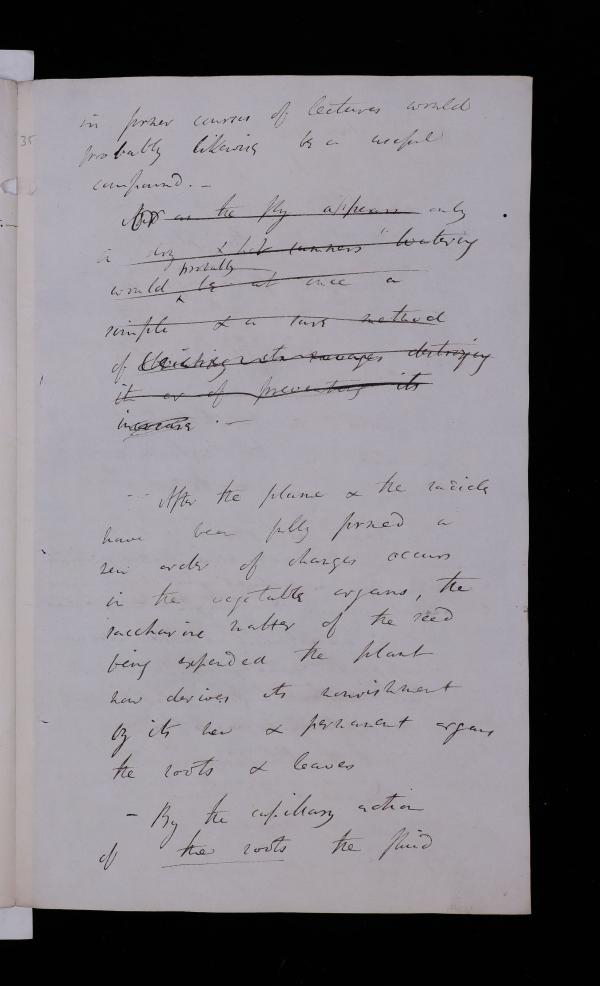 35
in former courses of lectures would
probably likewise be a useful
compound. —
as the fly appears only
a dry & hot summers watering
probably
would be at once a
simple & a sure method
of destroying
it or of preventing its
increase . —
— After the plume & the radicle
have been fully formed a
new order of changes occurs
in the vegetable organs, the
saccharine matter of the seed
being expended the plant
now derives its nourishment
by its new & permanent organs
the roots & leaves
— By the capillary action
of the roots the fluid